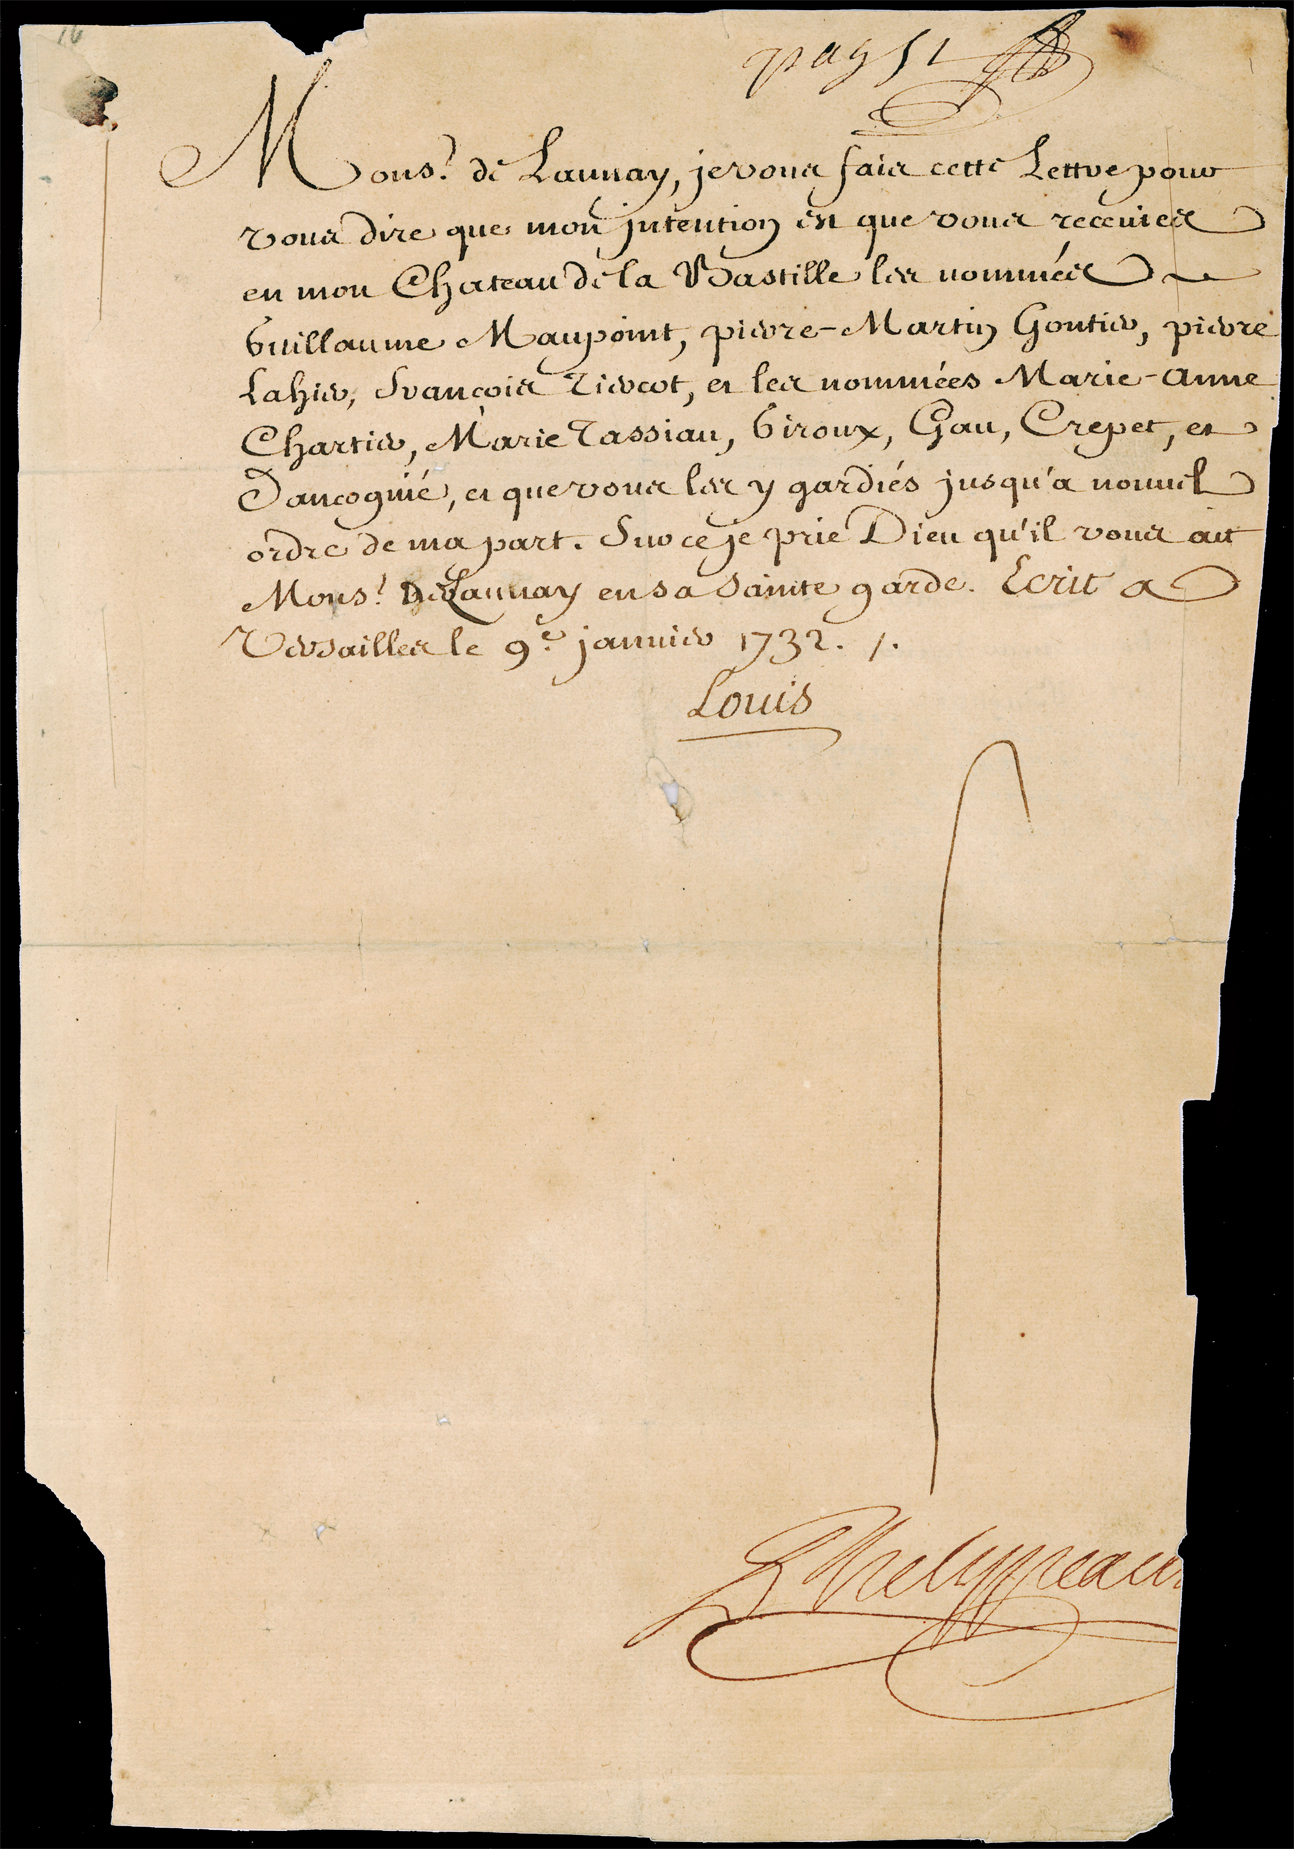 16
pag 51
Mons.^r de Launay, je vous fais cette Lettre pour
vous dire que mon jntention est que vous receviés
en mon Chateau de la Bastille les nommés
Guillaume Maupoint, pierre-Martin Gontier, pierre
Lahir, François Tiercot, et les nommées Marie-Anne
Chartier, Marie Tassiau, Giroux, Gau, Crepet, et
Dancognié, et que vous les y gardiés jusqu'a nouvel
ordre de ma part. Sur ce je prie Dieu qu'il vous ait
Mons.^r De Launay en sa sainte garde. Ecrit a
Versailles le 9.^e janvier 1732. /.
Louis
Phelypeaux